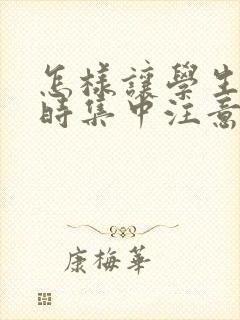 怎樣讓學生
時集中注意
康梅華